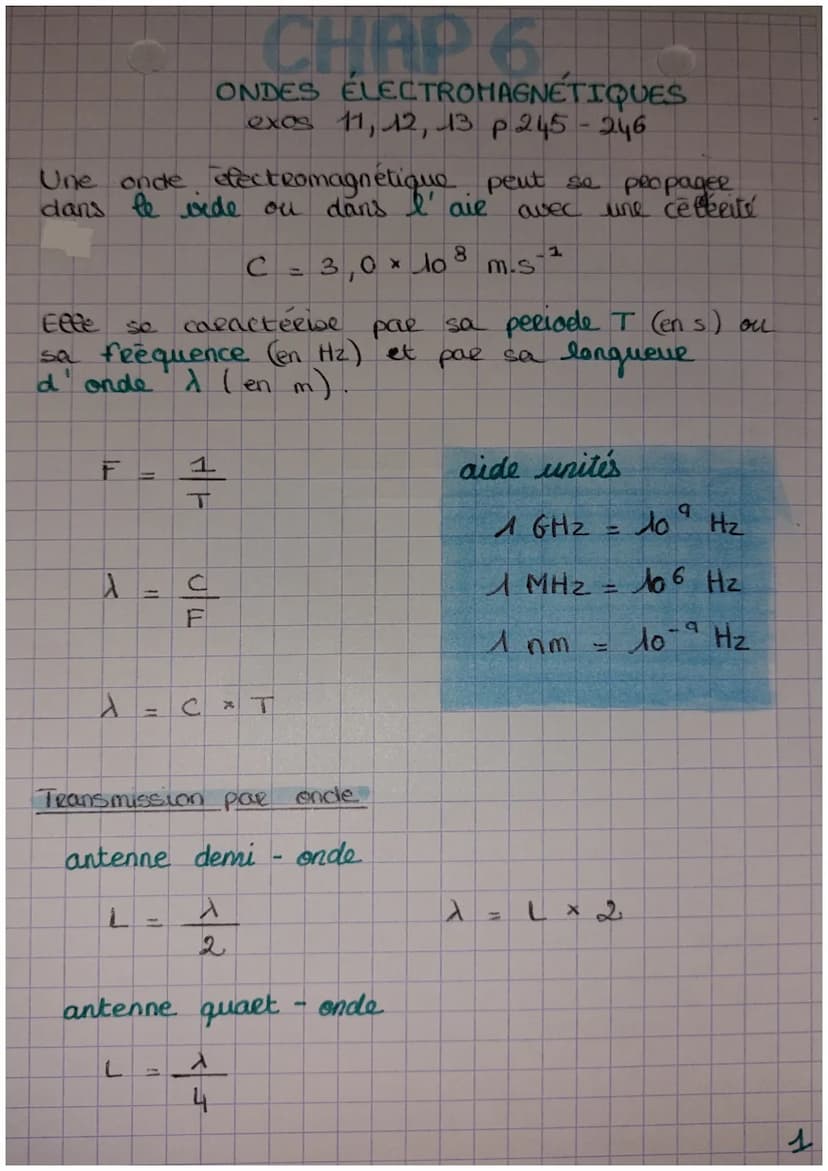 CHAP 6
ONDES ÉLECTROMAGNÉTIQUES
exos 11, 12, 13 p.245 - 246
Une onde électromagnétique peut se propager
dans le vide ou dans l'air avec une célérité
C = 3,0 × 10⁸ m.s⁻¹
Elle se caractérise par sa periode T (en s) ou
sa fréquence (en Hz) et par sa longueur
d'onde λ (en m).
F = 1/T
aide unités
1 GHz = 10⁹ Hz
λ = C/F
1 MHz = 10⁶ Hz
1 nm = 10⁻⁹ Hz
λ = C × T
Transmission par onde
antenne demi - onde
L = λ/2
λ = L × 2
antenne quart - onde
L = λ/4
1